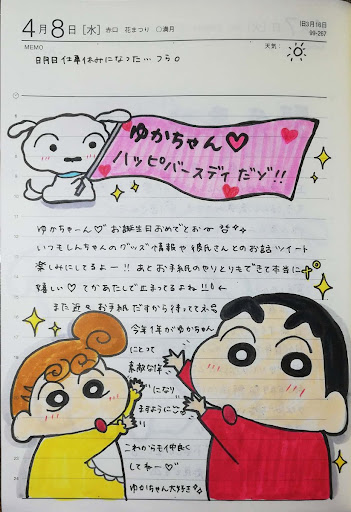 4月8日[水] 赤口 花まつり ○満月
旧3月16日
99-267
MEMO
天気:
日月日仕事休みになった…つら。
ゆかちゃん♡
ハッピバースディだゾ!!
ゆかちゃーん♡お誕生日おめでとおー
いつもしんちゃんのグッズ情報や彼氏さんとのお話ツイート
楽しみにしてるよー!!あとお手紙のやりとりもできて本当に
嬉しい♡てかあたしで止まってるよね!!!←
また近々お手紙だすから待っててネ。
今年1年がゆかちゃん
にとって
素敵な1年
になり
ますように
これからも仲良く
してねー♡
ゆかちゃん大好き